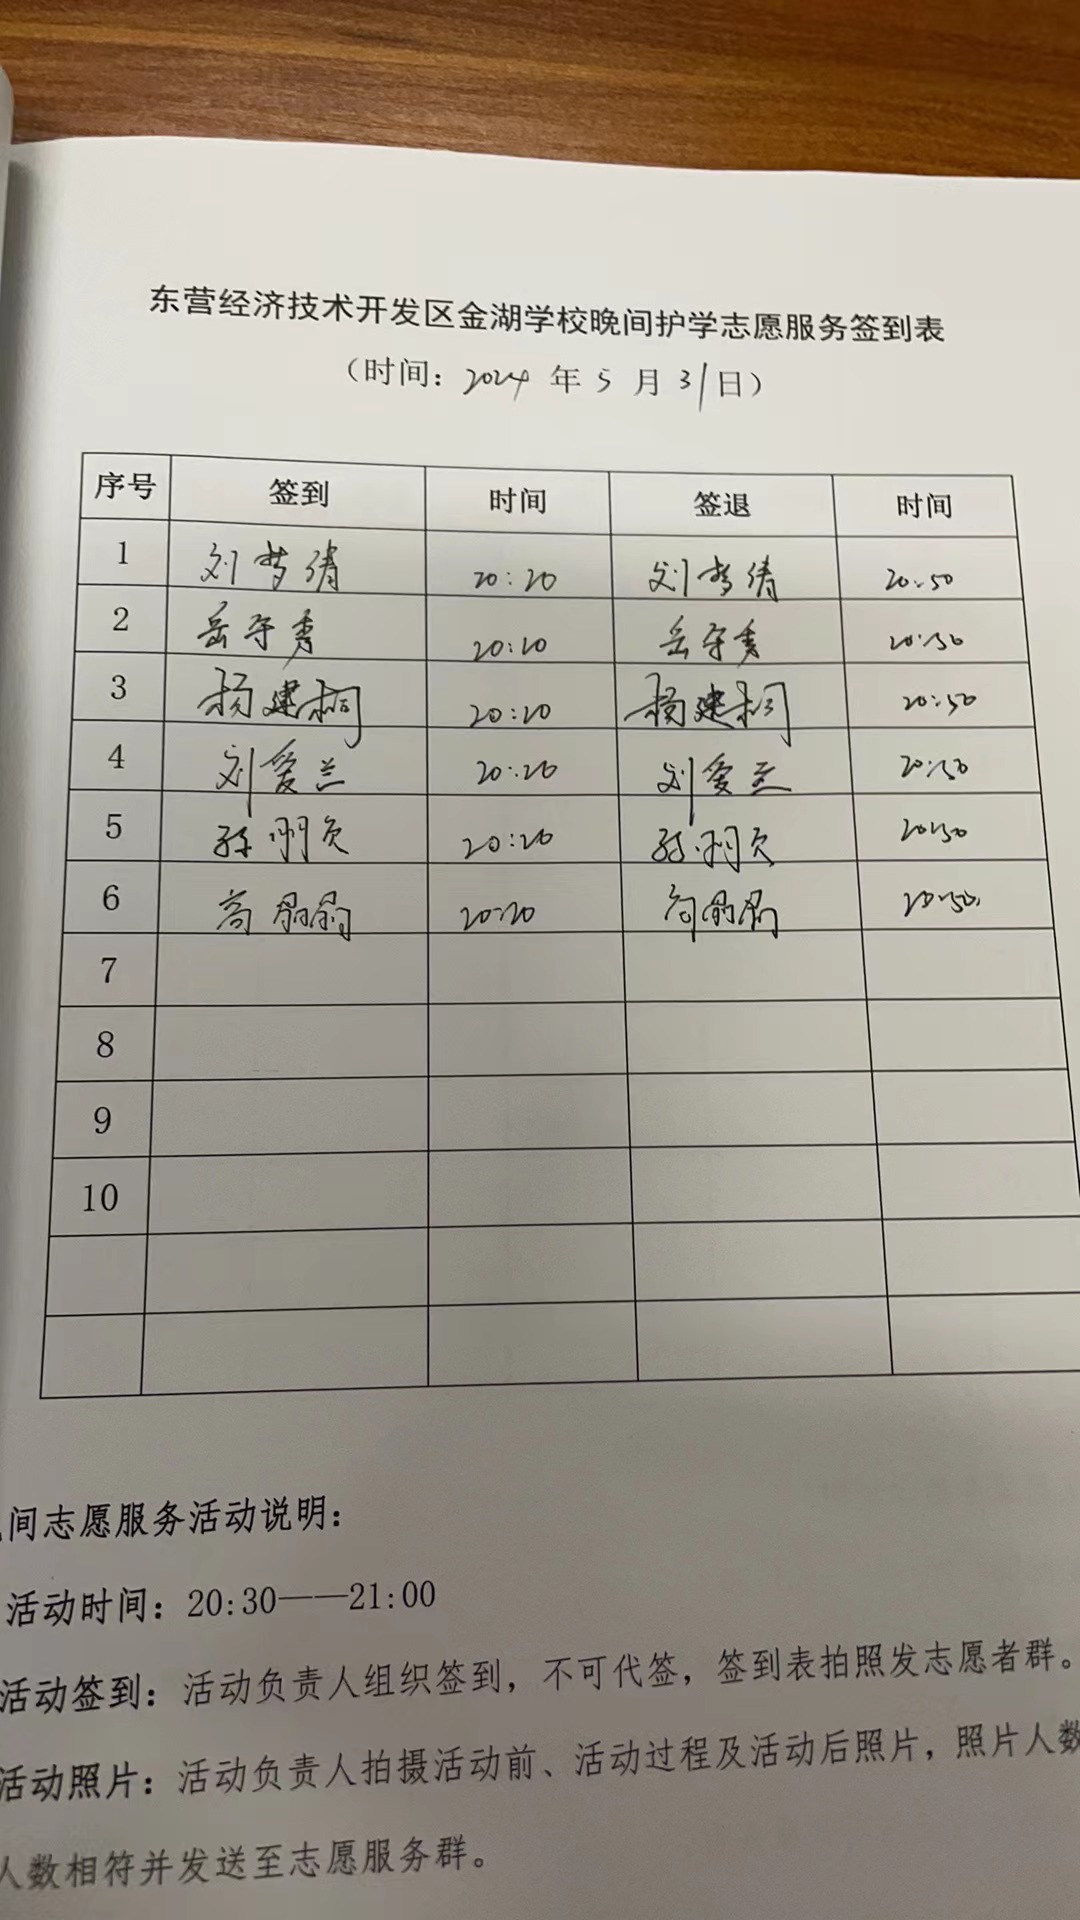 东营经济技术开发区金湖学校晚间护学志愿服务签到表
（时间：2024 年 5 月 31日）
序号 签到 时间 签退 时间
1 刘梦倩 20:20 刘梦倩 20:50
2 岳守秀 20:20 岳守秀 20:50
3 杨建桐 20:20 杨建桐 20:50
4 刘爱兰 20:20 刘爱兰 20:50
5 20:20 20:50
6 高晶晶 20:20 高晶晶 20:50
7
8
9
10
间志愿服务活动说明：
活动时间：20:30——21:00
活动签到：活动负责人组织签到，不可代签，签到表拍照发志愿者群。
活动照片：活动负责人拍摄活动前、活动过程及活动后照片，照片人数
人数相符并发送至志愿服务群。